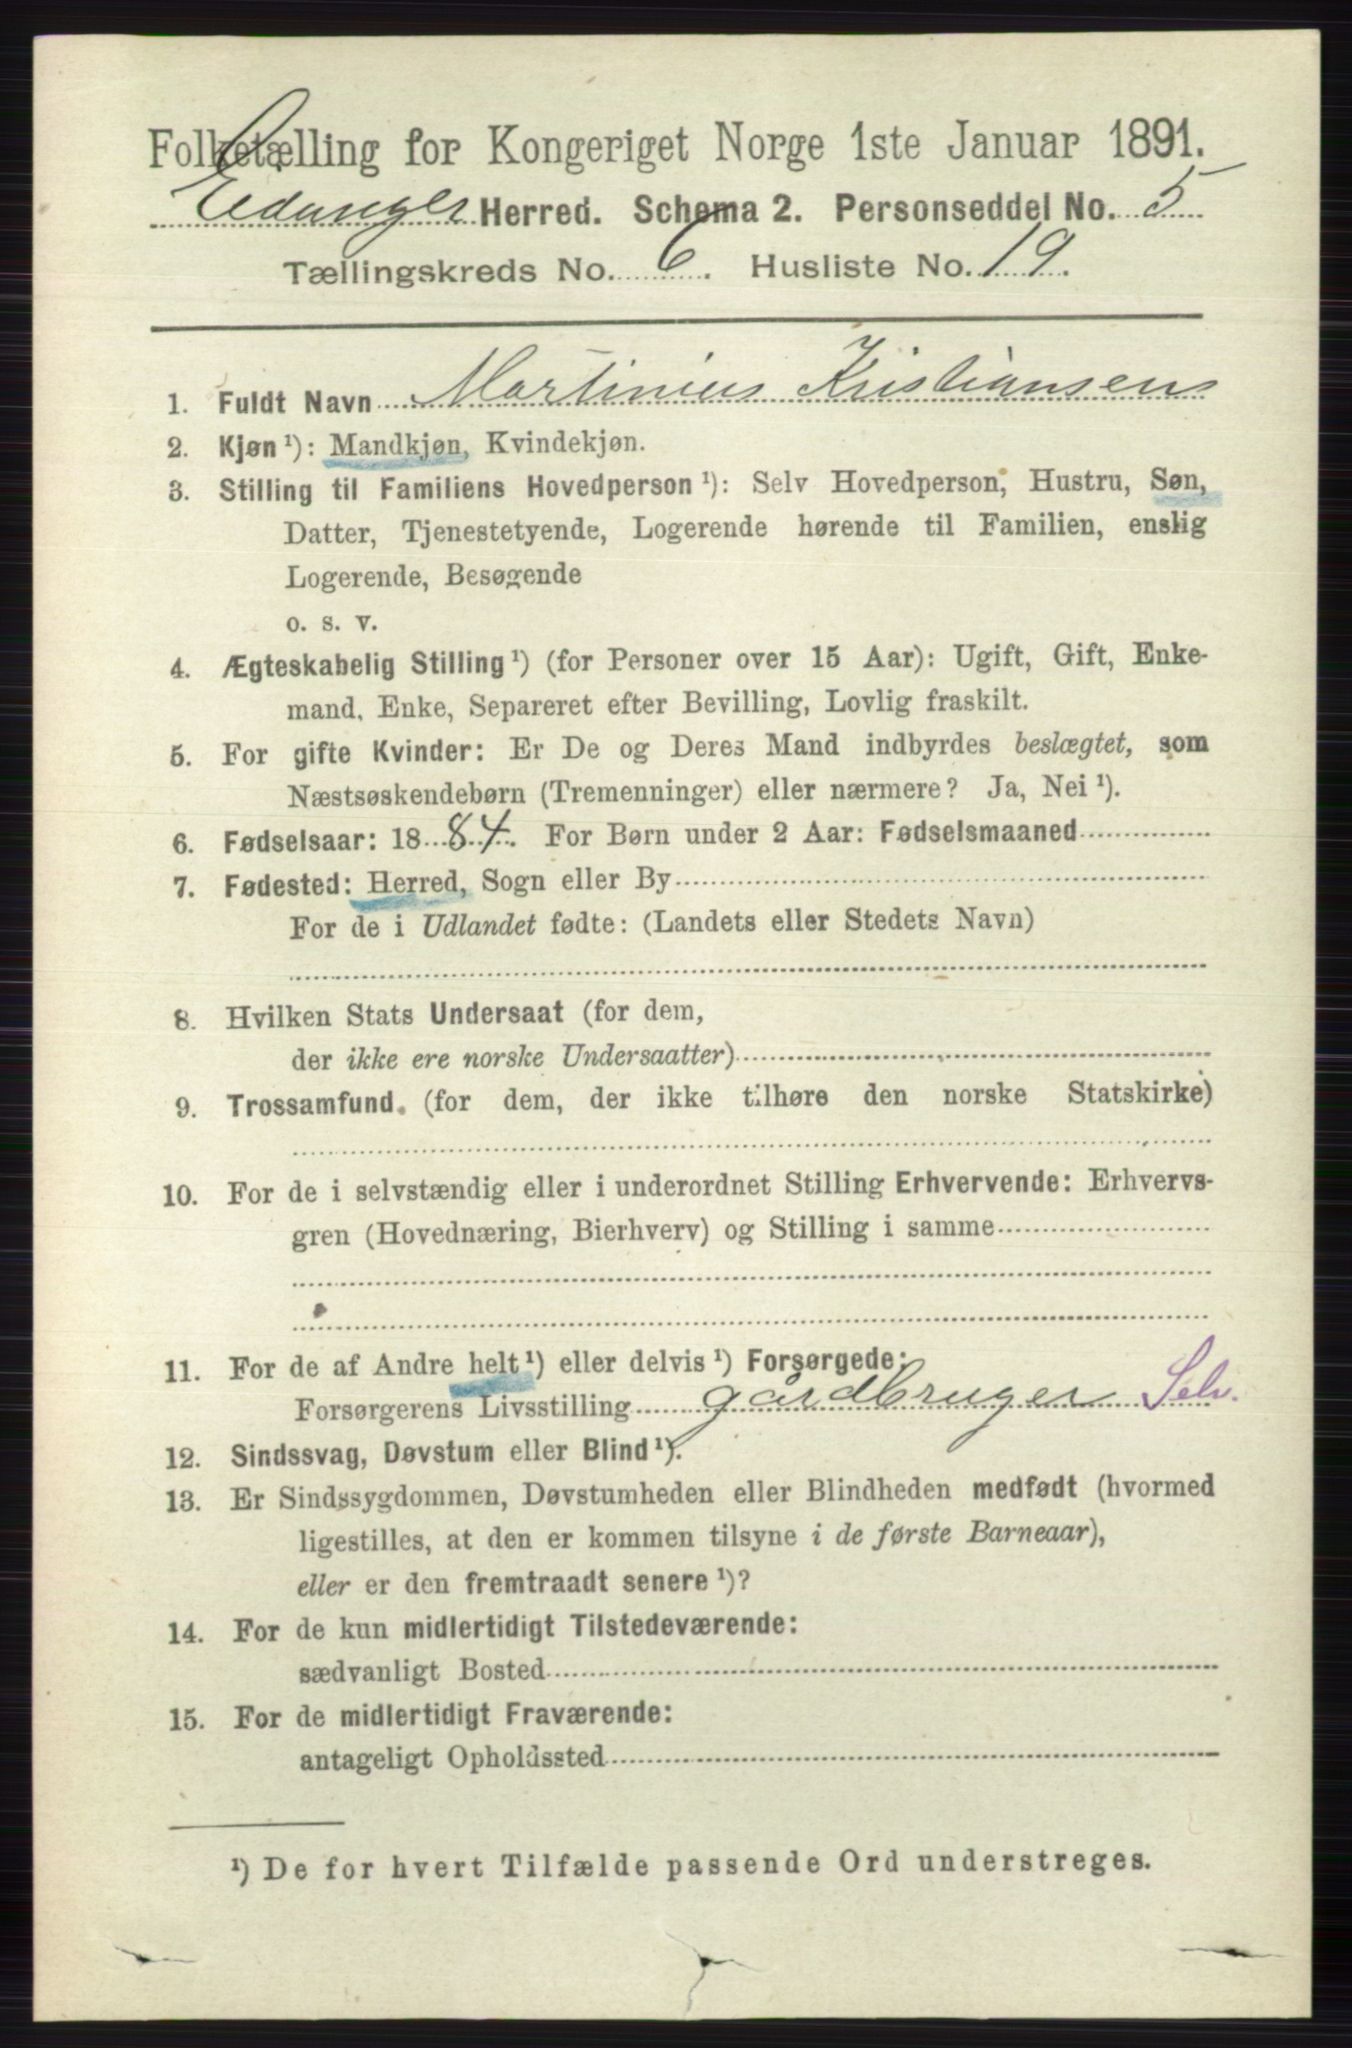 Folketælling for Kongeriget Norge 1ste Januar 1891.
Eidanger Herred. Schema 2. Personseddel No. 5
Tællingskreds No. 6. Husliste No. 19.
1. Fuldt Navn Martinius Kristiansen
2. Kjøn ¹): Mandkjøn, Kvindekjøn.
3. Stilling til Familiens Hovedperson ¹): Selv Hovedperson, Hustru, Søn,
Datter, Tjenestetyende, Logerende hørende til Familien, enslig
Logerende, Besøgende
o. s. v.
4. Ægteskabelig Stilling ¹) (for Personer over 15 Aar): Ugift, Gift, Enke-
mand, Enke, Separeret efter Bevilling, Lovlig fraskilt.
5. For gifte Kvinder: Er De og Deres Mand indbyrdes beslægtet, som
Næstsøskendebørn (Tremenninger) eller nærmere? Ja, Nei ¹).
6. Fødselsaar: 1884. For Børn under 2 Aar: Fødselsmaaned
7. Fødested: Herred, Sogn eller By
For de i Udlandet fødte: (Landets eller Stedets Navn)
8. Hvilken Stats Undersaat (for dem,
der ikke ere norske Undersaatter)
9. Trossamfund. (for dem, der ikke tilhøre den norske Statskirke)
10. For de i selvstændig eller i underordnet Stilling Erhvervende: Erhvervs-
gren (Hovednæring, Bierhverv) og Stilling i samme
11. For de af Andre helt ¹) eller delvis ¹) Forsørgede:
Forsørgerens Livsstilling gårdbruger Selv.
12. Sindssvag, Døvstum eller Blind ¹).
13. Er Sindssygdommen, Døvstumheden eller Blindheden medfødt (hvormed
ligestilles, at den er kommen tilsyne i de første Barneaar),
eller er den fremtraadt senere ¹)?
14. For de kun midlertidigt Tilstedeværende:
sædvanligt Bosted
15. For de midlertidigt Fraværende:
antageligt Opholdssted
¹) De for hvert Tilfælde passende Ord understreges.